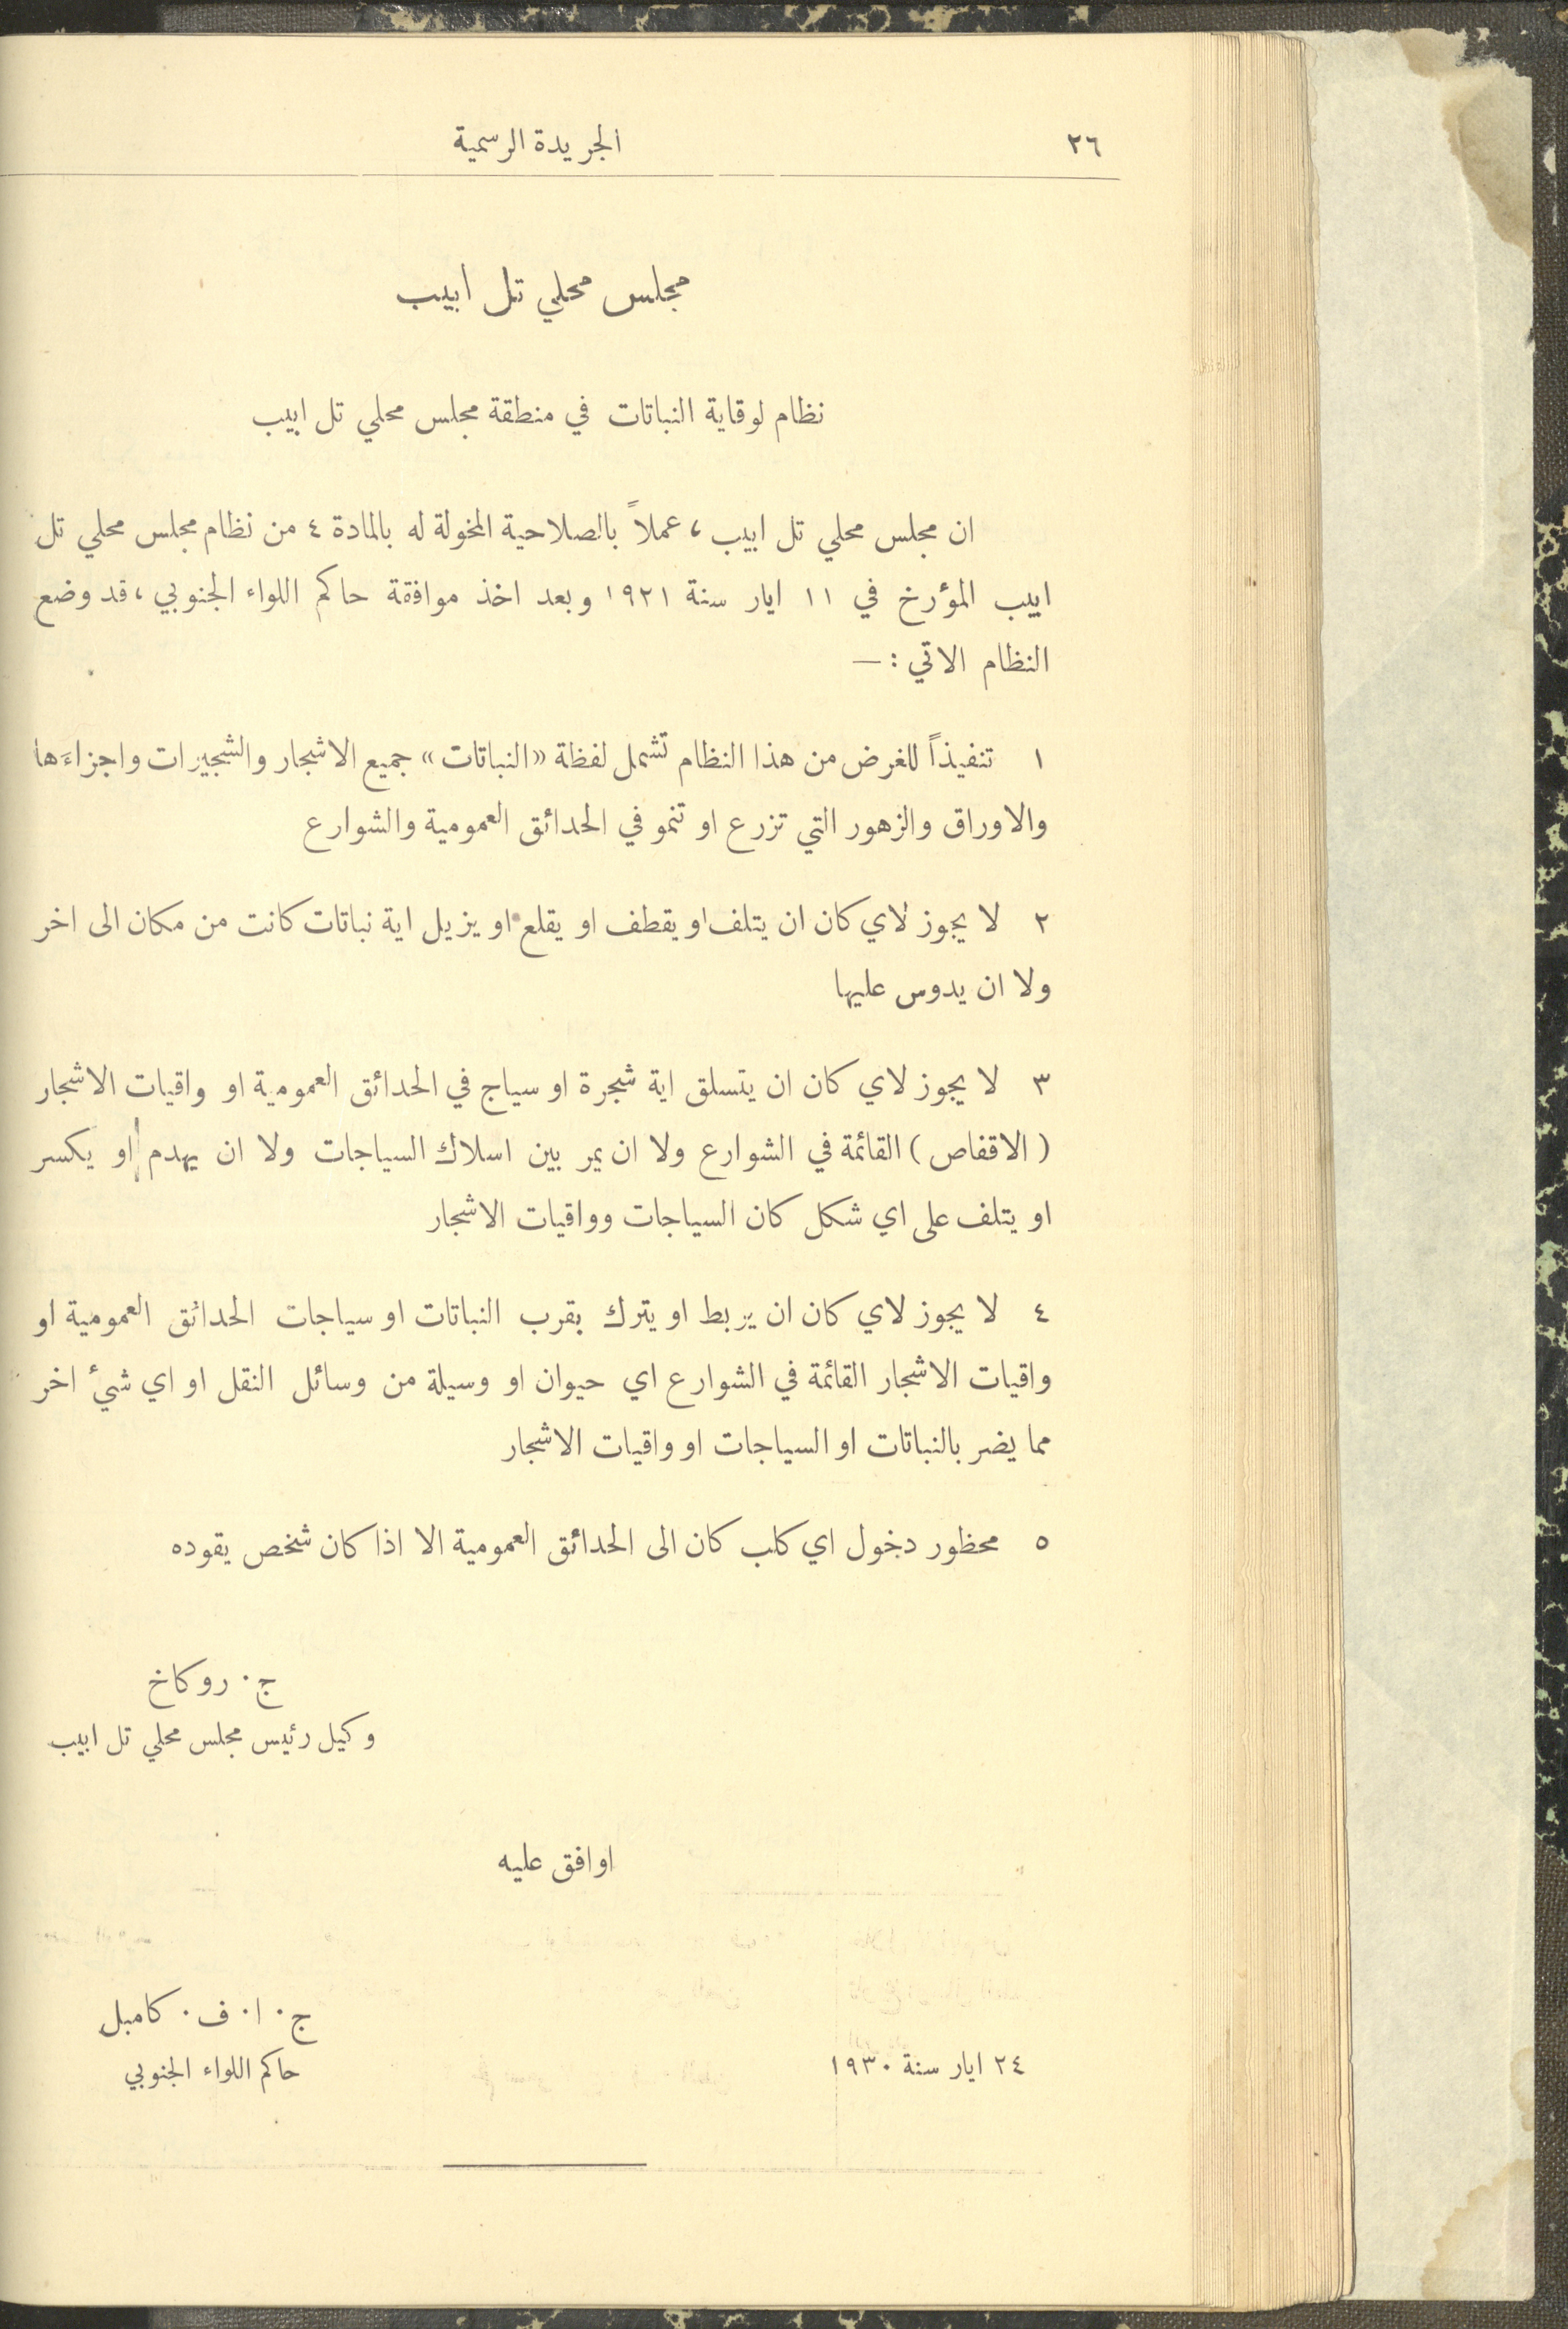 ٢٦
الجريدة الرسمية
مجلس محلي تل ابيب
نظام لوقاية النباتات في منطقة مجلس محلي تل ابيب
ان مجلس محلي تل ابيب، عملاً بالصلاحية المخولة له بالمادة ٤ من نظام مجلس محلي تل
ابيب المؤرخ في ١١ ايار سنة ١٩٢١ وبعد اخذ موافقة حاكم اللواء الجنوبي، قد وضع
النظام الاتي : —
١ تنفيذاً للغرض من هذا النظام تشمل لفظة «النباتات» جميع الاشجار والشجيرات واجزاءَها
والاوراق والزهور التي تزرع او تنمو في الحدائق العمومية والشوارع
٢ لا يجوز لاي كان ان يتلف او يقطف او يقلع او يزيل اية نباتات كانت من مكان الى اخر
ولا ان يدوس عليها
٣ لا يجوز لاي كان ان يتسلق اية شجرة او سياج في الحدائق العمومية او واقيات الاشجار
( الاقفاص ) القائمة في الشوارع ولا ان يمر بين اسلاك السياجات ولا ان يهدم او يكسر
او يتلف على اي شكل كان السياجات وواقيات الاشجار
٤ لا يجوز لاي كان ان يربط او يترك بقرب النباتات او سياجات الحدائق العمومية او
واقيات الاشجار القائمة في الشوارع اي حيوان او وسيلة من وسائل النقل او اي شئ اخر
مما يضر بالنباتات او السياجات او واقيات الاشجار
٥ محظور دخول اي كلب كان الى الحدائق العمومية الا اذا كان شخص يقوده
ج. روكاخ
وكيل رئيس مجلس محلي تل ابيب
اوافق عليه
ج. ا. ف. كامبل
٢٤ ايار سنة ١٩٣٠
حاكم اللواء الجنوبي